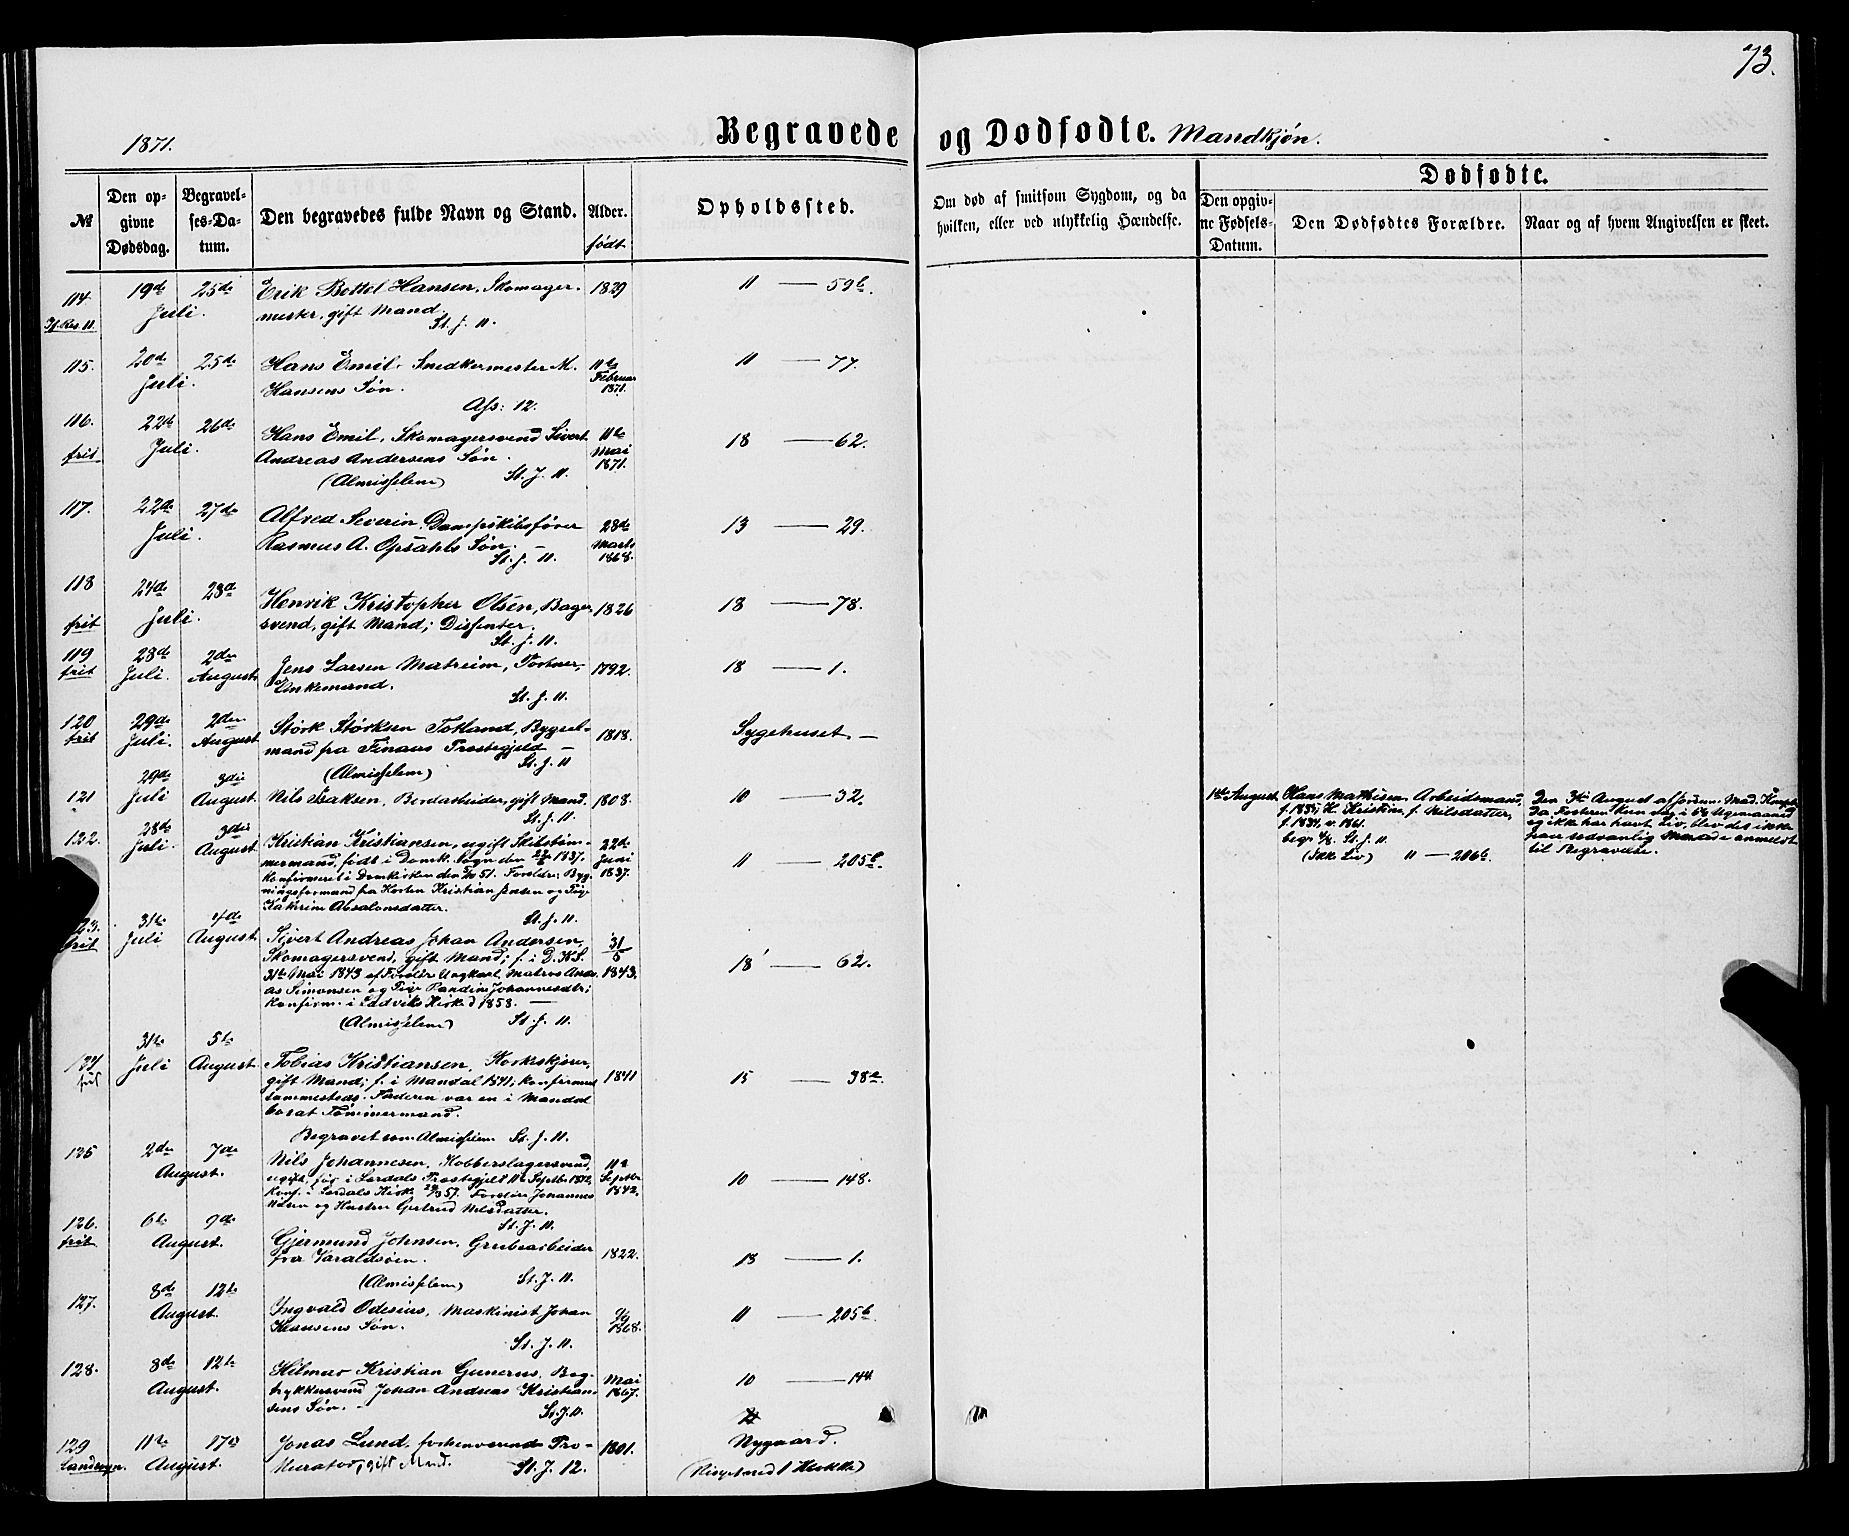 73.
1871.
Begravede og Dødfødte. Mandkjøn.
№
Den opgivne Dødsdag.
Begravelses-Datum.
Den begravedes fulde Navn og Stand.
Alder.
født
Opholdssted.
Om død af smitsom Sygdom, og da
hvilken, eller ved ulykkelig Hændelse.
Dødfødte.
Den opgivne Fødsels-Datum.
Den Dødfødtes Forældre.
Naar og af hvem Angivelsen er skeet.
114. 19de Juli. 25de Erik Bottol Hansen, Skomager- 1829 11 — 59b.
mester, gift Mand.
St. J. 11.
115. 20de Juli. 25de Hans Emil, Snedkermester M. 11te Februar 1871. 11 — 77.
Hansens Søn.
Ass: 12.
116. frit 22de Juli. 26de Hans Emil, Skomagersvend Sivert 11te Mai 1871. 18 — 62.
Andreas Andersens Søn.
(Almisselem) St. J. 11.
117. 22de Juli. 27de Alfred Severin, Dampskibsfører 28de Marts 1868. 13 — 29.
Rasmus A. Opsahls Søn.
St. J. 11.
118 frit 24de Juli. 28de Henrik Kristopher Olsen, Bager- 1826 18 — 78.
svend, gift Mand; Dissenter.
St. J. 11.
119 frit 28de Juli. 2den August. Jens Larsen Matreim, Portner, 1792. 18 — 1.
Enkemand.
St. J. 11.
120 frit 29de Juli. 2den August Størk Størksen Totland, Bygsel- 1818. Sygehuset. —
mand fra Finaas Præstegjeld —
(Almisselem) St. J. 11
121 29de Juli 3die August. Nils Isaksen, Bordarbeider, gift Mand. 1808. 10 — 32.
St. J. 11.
1ste August. Hans Mathisen, Arbeidsmand,
f. 1835; H. Kristine, f. Nilsdatter,
f. 1834, v. 1861.
St. J. 11.
(Ikke Liv) 11 — 206b.
Den 3die August af Jordem. Mad.
Da Fosteren kun laa i 6te Sygemaaned
og ikke har havt Liv, blev det ikke
paa sedvanlig Maade anmeldt
til Begravelse.
122. 28de Juli 3die August Kristian Kristiansen, ugift Skibstøm- 22de Juni 1837. 11 — 205b.
mermand, født i Domk. Sogn den 22/6 1837.
Konfirmeret i Domkirken den 51. Foreldre: Byg-
ningsformand fra Horten Kristian Jensen og Pige
Kathrine Absalonsdatter.
St. J. 11.
frit 31te Juli 4de August. Sivert Andreas Johan Andersen, 31/5 1843. 18 — 62.
Skomagersvend, gift Mand; f. i D. K. S.
31te Mai 1843 af Foreldre Ungkarl, Matros Andre-
as Simonsen og Pige Randine Johannesdtr;
konfirm. i Ladviks Kirke 1858. —
(Almisselem) St. J. 11.
124 frit 31te Juli 5te August Tobias Kristiansen, Korkskjærer, 1841 15 — 38a.
gift Mand; f. i Mandal 1841; konfirmeret
sammesteds. Faderen var en i Mandal
bosat Tømmermand.
Begravet som Almisselem St. J. 11.
125 2den August. 7de Nils Johannesen, Kobberslagersvend, 11te Septbr 1842. 10 — 148.
ugift, født i Søndals Præstegjeld 11te Septbr 1842,
konf. i Søndals Kirke 57. Foreldre Johannes
Nilsen og Hustru Gertrud Nilsdatter.
St. J. 11.
126. frit 6te August. 9de Gjermund Johnsen, Grubearbeider 1822. 18 — 1.
fra Varaldsøen.
(Almisselem) St. J. 11.
127. 8de August. 12te Yngvald Odesius, Maskinist Johan 1868. 11 — 205b.
Klausens Søn.
St. J. 11.
128. 8de August. 12te Hilmar Kristian Gunerus, Bog- Mai 1867. 10 — 144.
trykkersvend Johan Andreas Kristian-
sens Søn. —
St. J. 11.
129 Landsogn. 11te August. 17de Jonas Lund, forhenværende Pro- 1801. Nygaard.
kurator, gift Mand. St. J. 12.